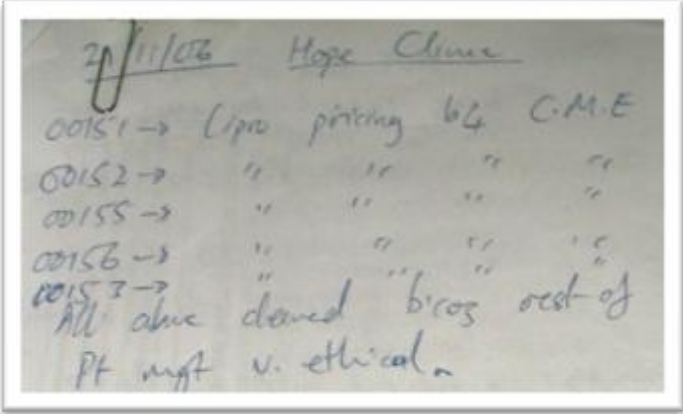 /11/06 Hope Clinic
00151→ Cipro pricing b4 C.M.E
00152→ " " " "
00155→ " " " "
00156→ " " " "
00153→ " " " "
All above cleared b'coz rest of
Pt mgt v. ethical.